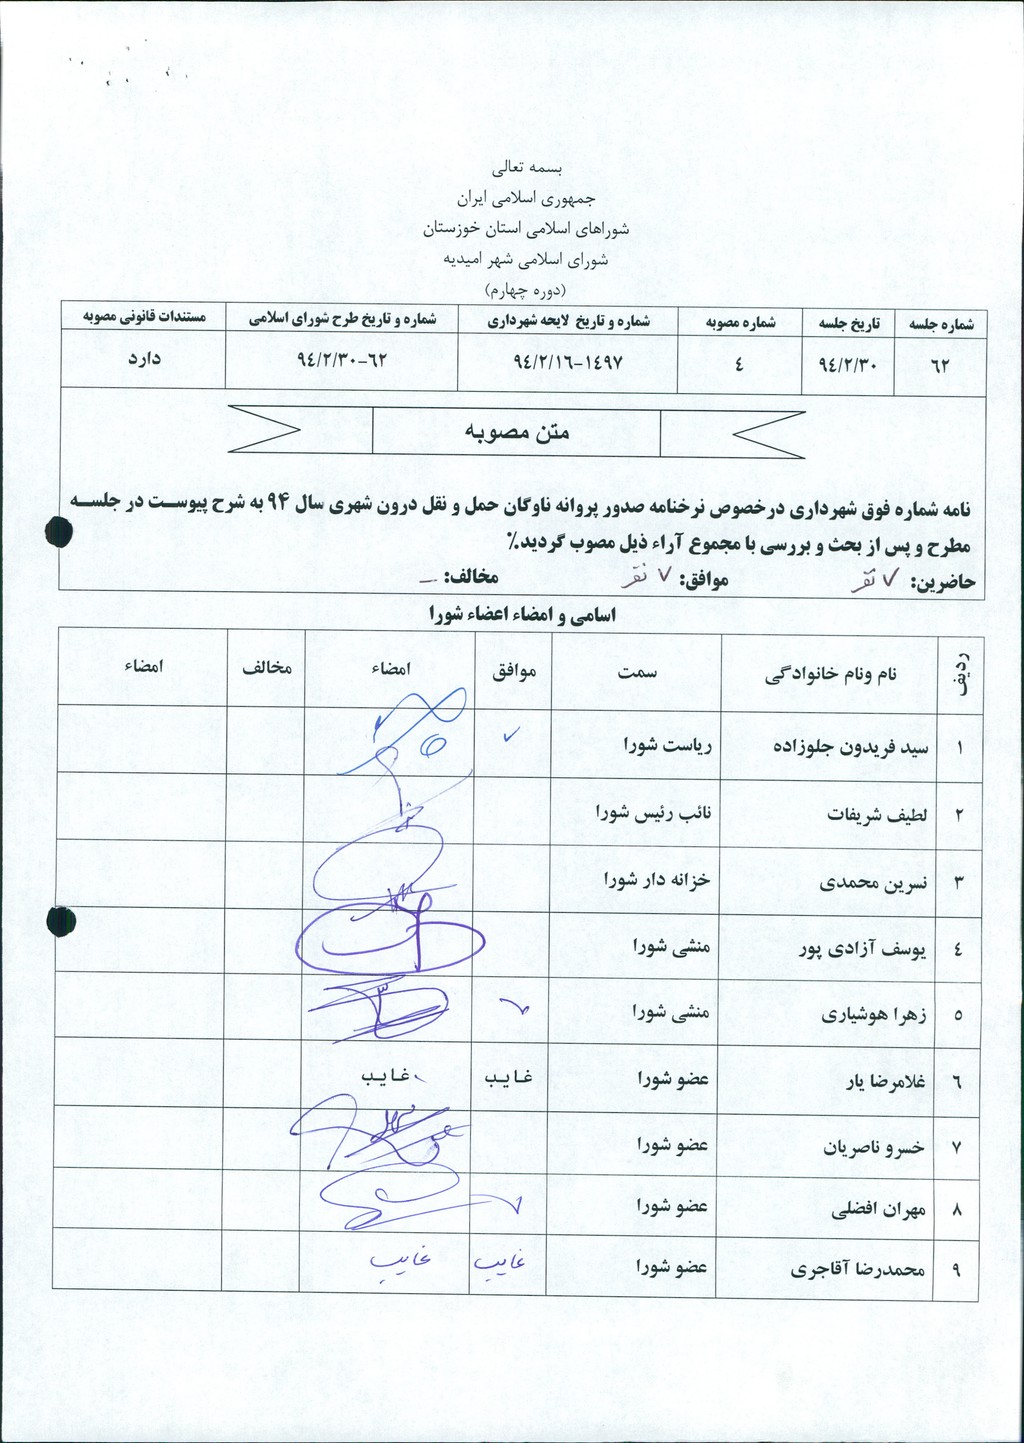 بسمه تعالی
جمهوری اسلامی ایران
شوراهای اسلامی استان خوزستان
شورای اسلامی شهر امیدیه
(دوره چهارم)
شماره جلسه تاریخ جلسه شماره مصوبه شماره و تاریخ لایحه شهرداری شماره و تاریخ طرح شورای اسلامی مستندات قانونی مصوبه
۶۲ ۹٤/۲/۳۰ ٤ ۹٤/۲/۱۶-۱٤۹۷ ۹٤/۲/۳۰-۶۲ دارد
متن مصوبه
نامه شماره فوق شهرداری درخصوص نرخنامه صدور پروانه ناوگان حمل و نقل درون شهری سال ۹۴ به شرح پیوست در جلسه
مطرح و پس از بحث و بررسی با مجموع آراء ذیل مصوب گردید.٪
حاضرین: ۷ نفر موافق: ۷ نفر مخالف: –
اسامی و امضاء اعضاء شورا
ردیف نام ونام خانوادگی سمت موافق امضاء مخالف امضاء
۱ سید فریدون جلوزاده ریاست شورا ✓
۲ لطیف شریفات نائب رئیس شورا
۳ نسرین محمدی خزانه دار شورا
٤ یوسف آزادی پور منشی شورا
٥ زهرا هوشیاری منشی شورا ✓
۶ غلامرضا یار عضو شورا غایب غایب
۷ خسرو ناصریان عضو شورا
۸ مهران افضلی عضو شورا ✓
۹ محمدرضا آقاجری عضو شورا غایب غایب